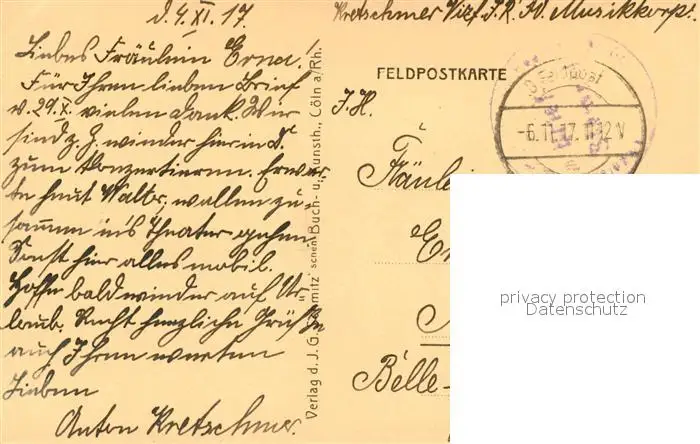 d. 4. XI. 17.
Kretschmer Vizf. I.R. Musikkorps.
Liebes Fräulein Erna!
Für Ihren lieben Brief
v. 29.X. vielen Dank. Wir
sind z. Z. wieder hier in D.
zum Konzertieren. Erwar-
te heut Walter, wollen zu-
sammen ins Theater gehen.
Sonst hier alles mobil.
Hoffe bald wieder auf Ur-
laub. Recht herzliche Grüße
auch Ihren werten
Lieben
Anton Kretschmer.
Verlag d. J. G. Schmitz'schen Buch- u. Kunsth., Cöln a/Rh.
FELDPOSTKARTE
Feldpost
-6.11.17. 11-12 V
I. H.
Fräulei
Er
Belle-
privacy protection
Datenschutz